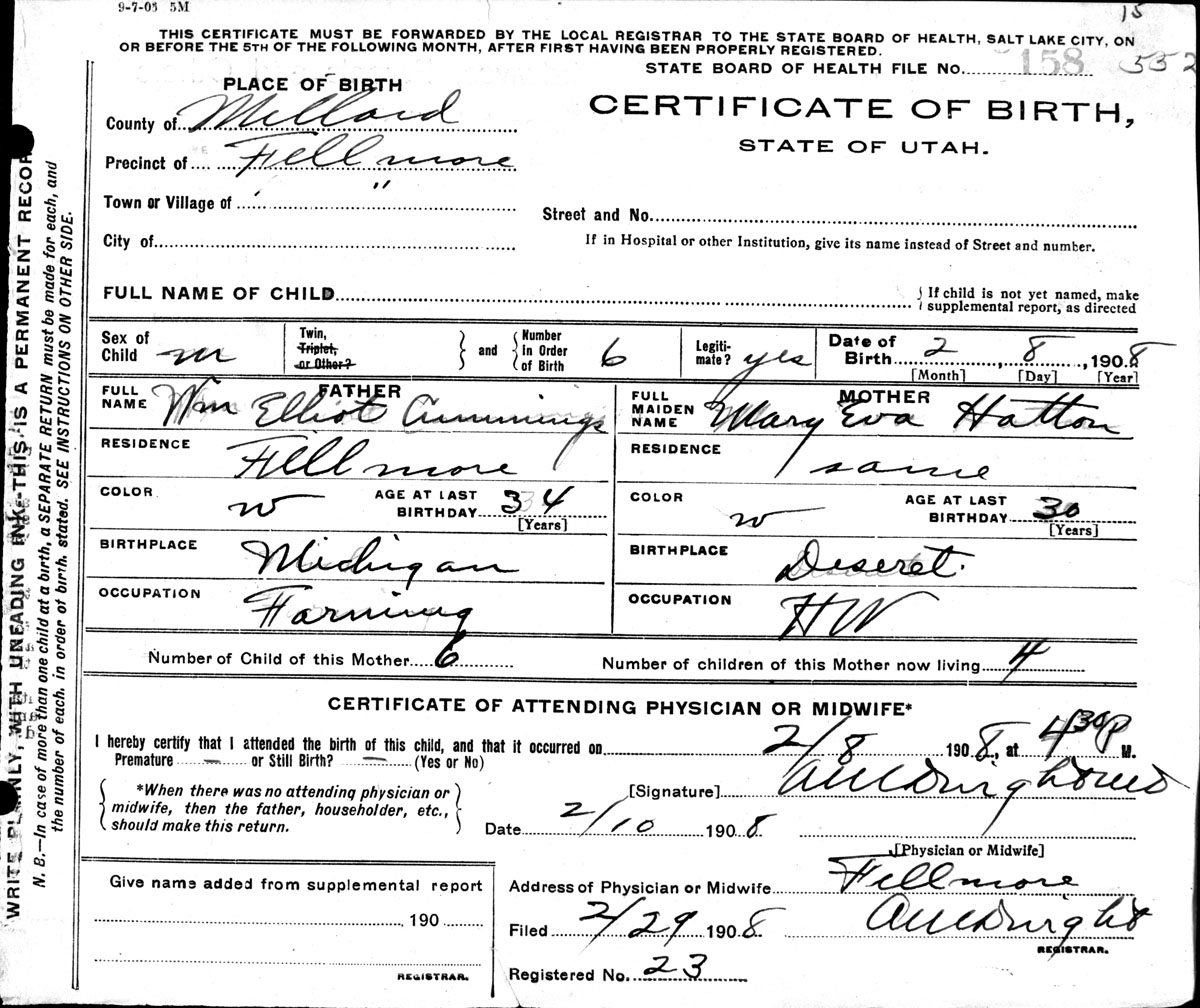 9-7-05 5M
15
THIS CERTIFICATE MUST BE FORWARDED BY THE LOCAL REGISTRAR TO THE STATE BOARD OF HEALTH, SALT LAKE CITY, ON
OR BEFORE THE 5TH OF THE FOLLOWING MONTH, AFTER FIRST HAVING BEEN PROPERLY REGISTERED.
STATE BOARD OF HEALTH FILE No. 158 552
PLACE OF BIRTH
CERTIFICATE OF BIRTH,
STATE OF UTAH.
County of Millard
Precinct of Fillmore
Town or Village of "
City of
Street and No.
If in Hospital or other Institution, give its name instead of Street and number.
FULL NAME OF CHILD
If child is not yet named, make
supplemental report, as directed
Sex of Child m
Twin, Triplet, or Other?
and
Number in Order of Birth 6
Legiti-mate? yes
Date of Birth 2, 8, 1908
[Month] [Day] [Year]
FATHER
FULL NAME Wm Elliot Cummings
RESIDENCE Fillmore
COLOR w AGE AT LAST BIRTHDAY 34
[Years]
BIRTHPLACE Michigan
OCCUPATION Farming
MOTHER
FULL MAIDEN NAME Mary Eva Hatton
RESIDENCE same
COLOR w AGE AT LAST BIRTHDAY 30
[Years]
BIRTHPLACE Deseret.
OCCUPATION HW
Number of Child of this Mother 6 Number of children of this Mother now living 4
CERTIFICATE OF ATTENDING PHYSICIAN OR MIDWIFE*
I hereby certify that I attended the birth of this child, and that it occurred on 2/8 1908, at 4 30 P M.
Premature — or Still Birth? — (Yes or No)
*When there was no attending physician or
midwife, then the father, householder, etc.,
should make this return.
[Signature]
Date 2/10 1908
[Physician or Midwife]
Give name added from supplemental report
190
REGISTRAR.
Address of Physician or Midwife Fillmore
Filed 2/29 1908
REGISTRAR.
Registered No. 23
WRITE PLAINLY, WITH UNFADING INK-THIS IS A PERMANENT RECOR
N. B.—In case of more than one child at a birth, a SEPARATE RETURN must be made for each, and
the number of each, in order of birth, stated. SEE INSTRUCTIONS ON OTHER SIDE.